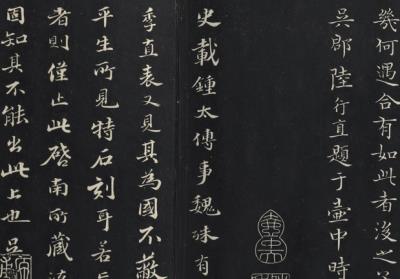 幾何遇合有如此者後之
吳郡陸行直題于壺中時
史載鍾太傅事魏殊有
季直表又見其為國不蔽
平生所見特石刻耳若
者則僅止此啓南所藏
固知其不能出此上也吳